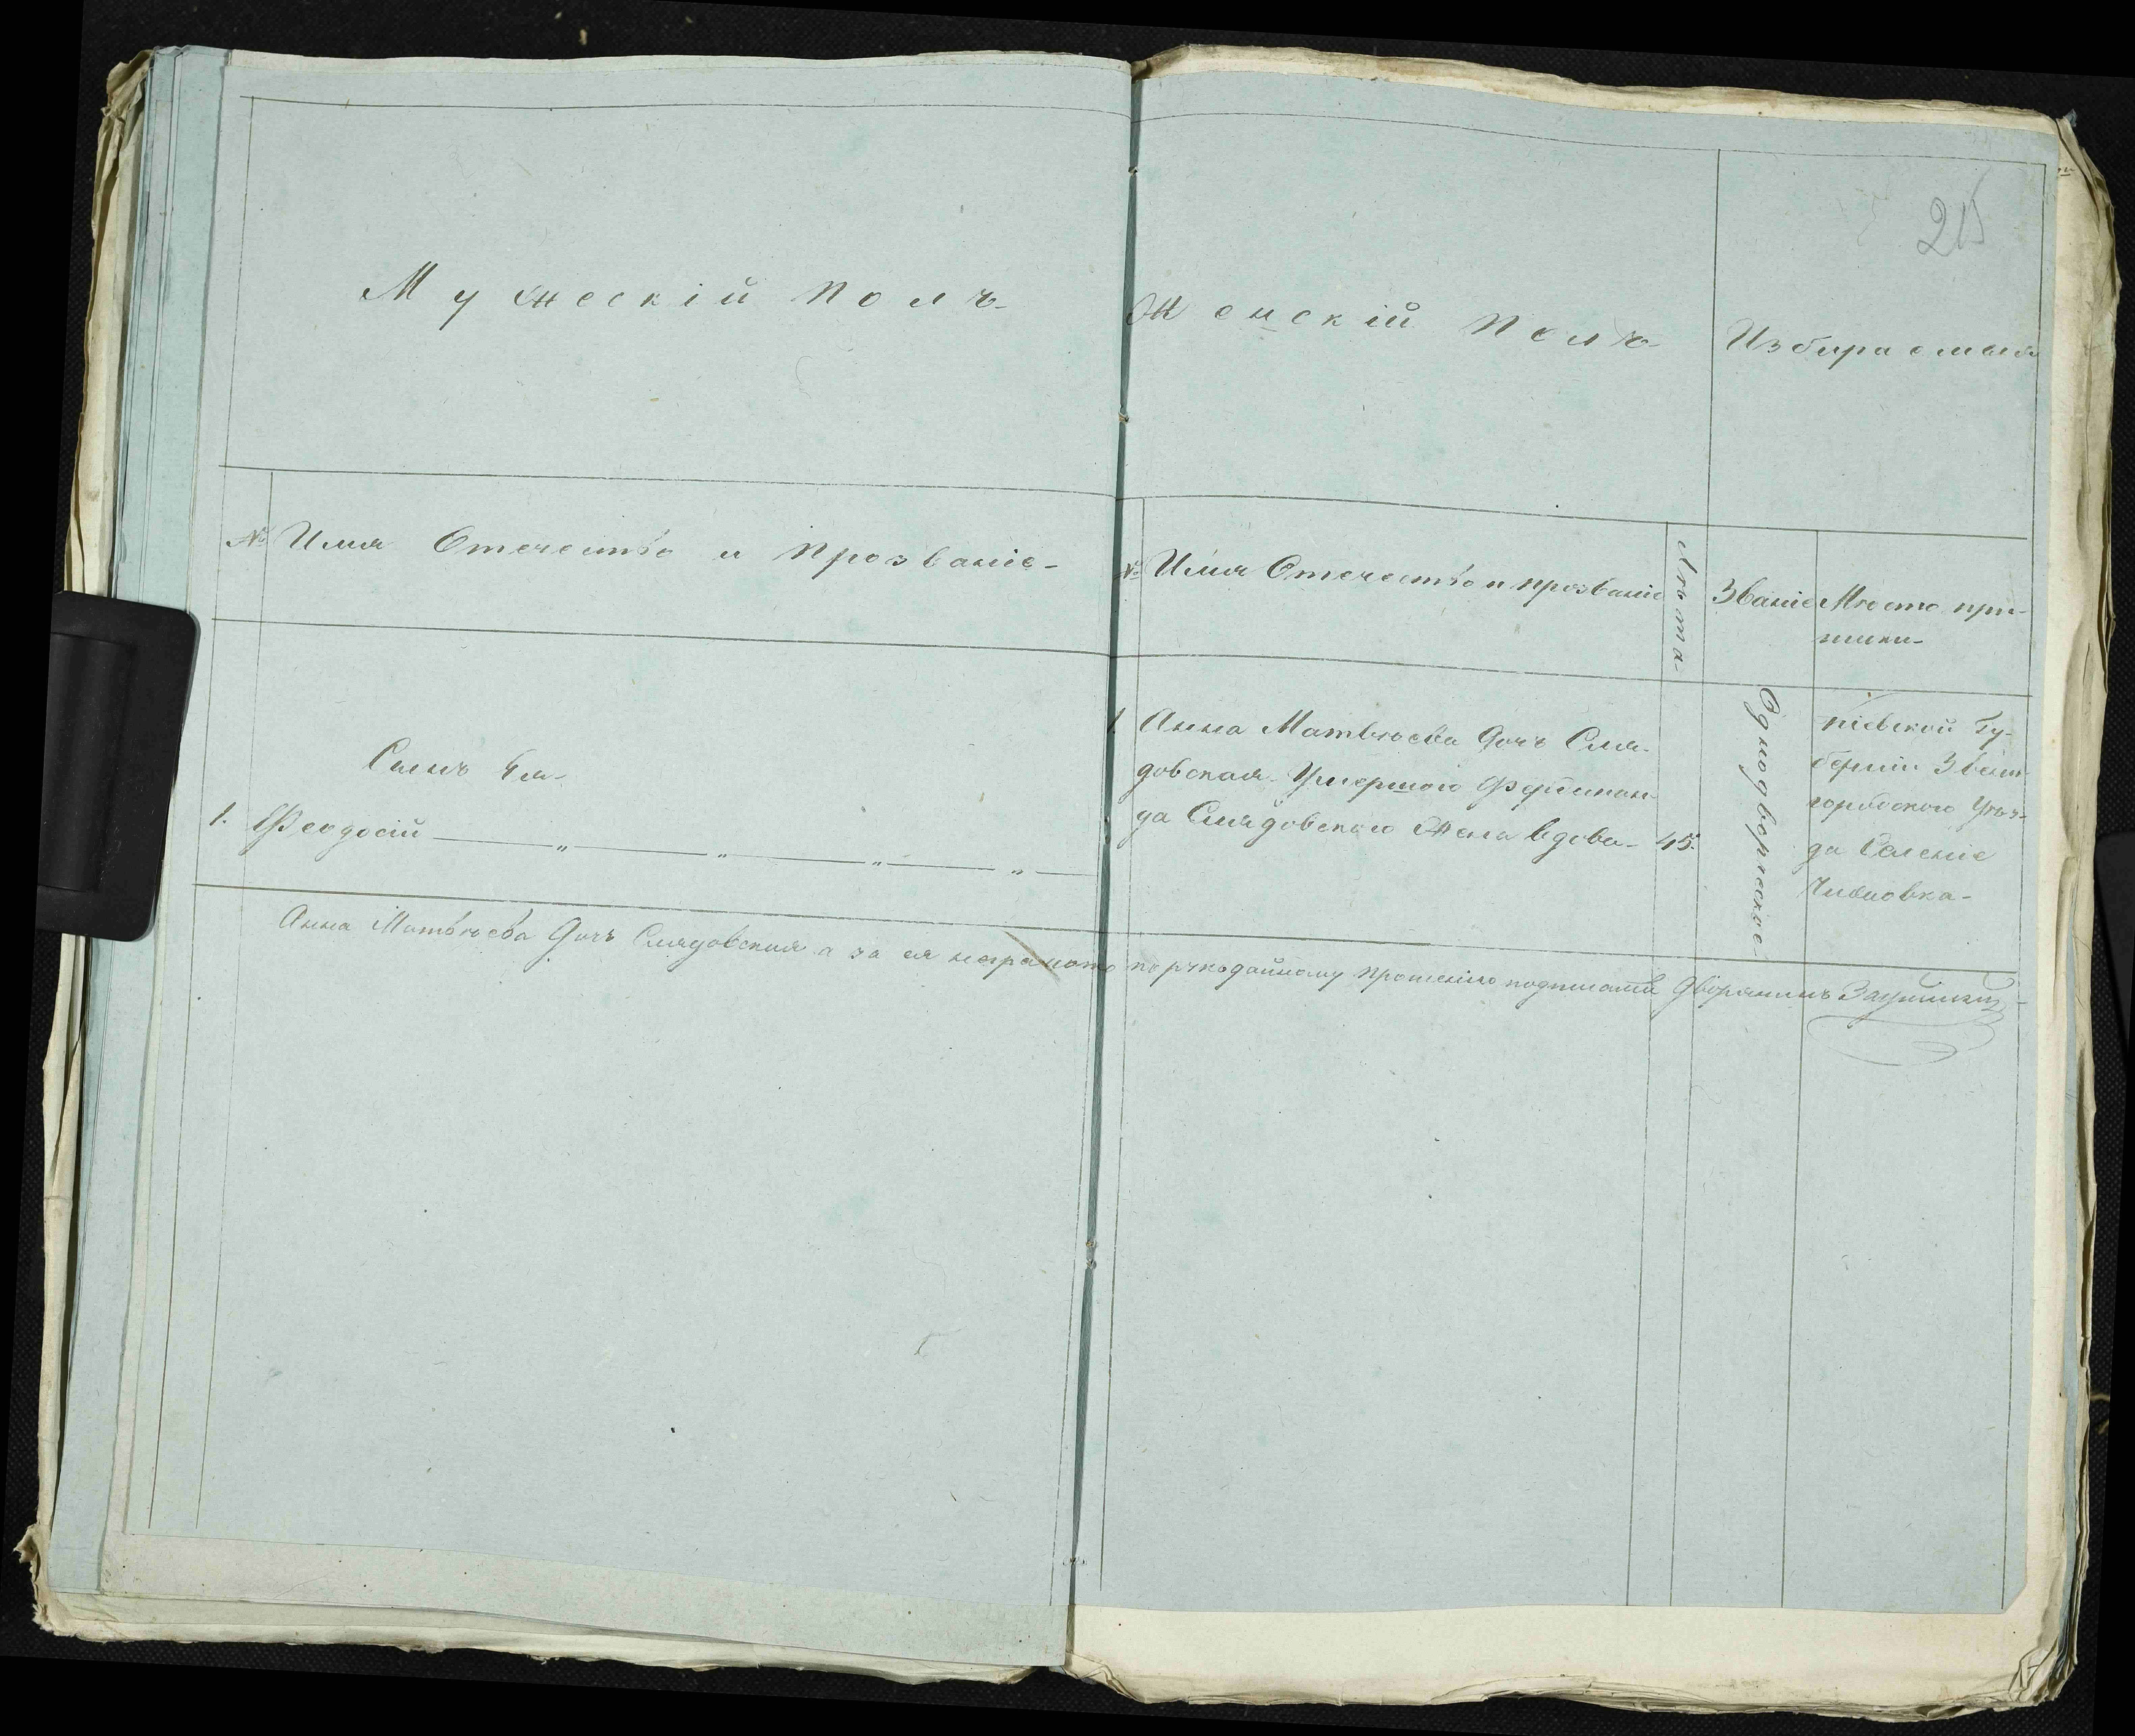 215
Мужескій Полъ
Женскій Полъ
Избираемыя
№ Имя Отечество и Прозваніе
№ Имя Отечество и прозваніе
Лѣта
Званіе
Мѣсто при-
писки
1. Анна Матвѣева Дочь Смя-
довская Умершого Фердинан-
да Смядовского Жена вдова 45.
Однодворческое
Кіевской Гу-
берніи Звени-
городского Уѣз-
да Селеніе
Сынъ Ея
1. Феодосій
Анна Матвѣева Дочь Смядовская а за ея неграмотно по рукоданному прошенію подписалъ Дворянинъ